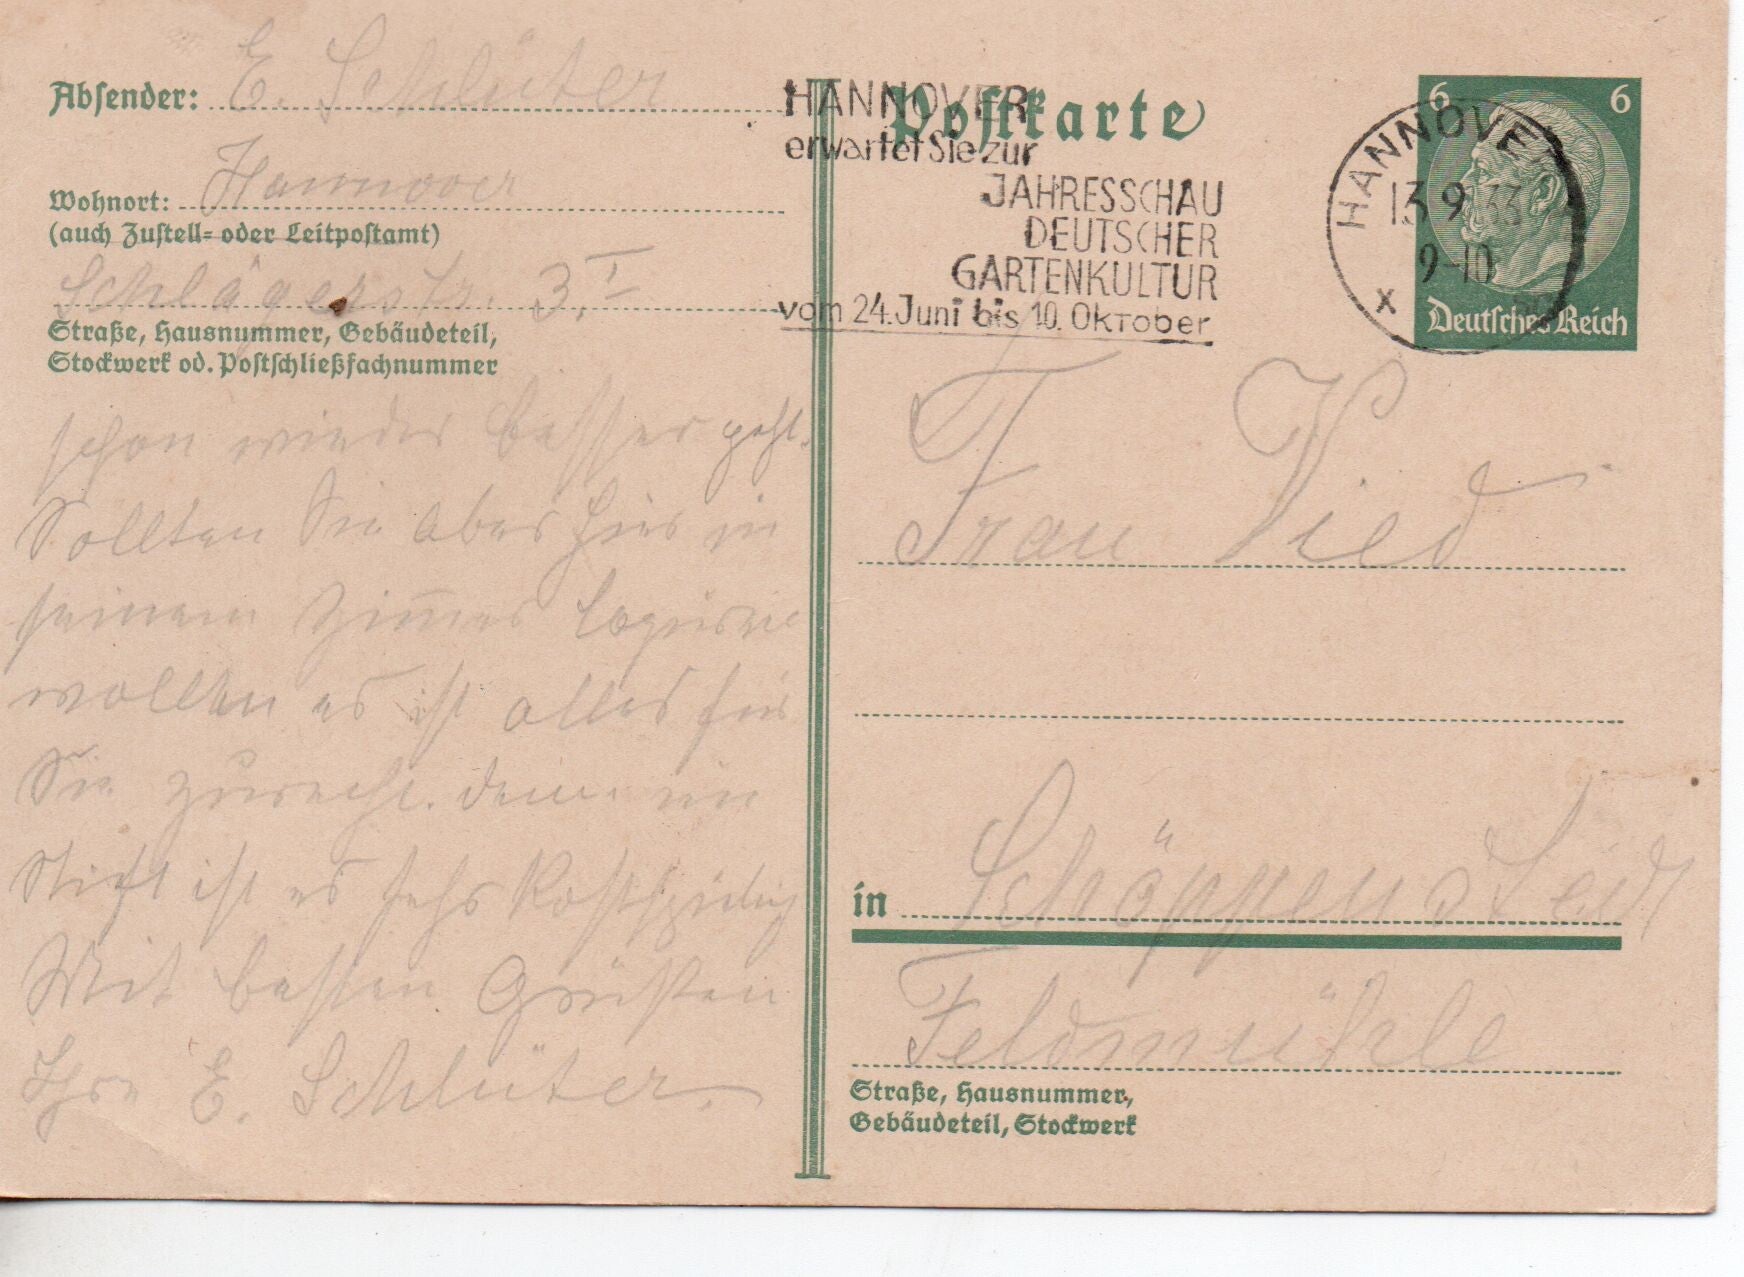 Absender: E. Schlüter
Wohnort: Hannover
(auch Zustell- oder Leitpostamt)
Schlägerstr. 3. I
Straße, Hausnummer, Gebäudeteil,
Stockwerk od. Postschließfachnummer
schon wieder besser geht.
Sollten Sie aber hier in
seinem Zimmer
wollen es ist alles für
Sie zurecht. denn im
Stift ist es sehr kostspielig
Mit besten Grüßen
Ihre E. Schlüter.
Postkarte
HANNOVER
erwartet Sie zur
JAHRESSCHAU
DEUTSCHER
GARTENKULTUR
vom 24. Juni bis 10. Oktober
HANNOVER
13.9.33
9-10
6 6
Deutsches Reich
Frau Vied
in Schöppenstedt
Feldmühle
Straße, Hausnummer,
Gebäudeteil, Stockwerk